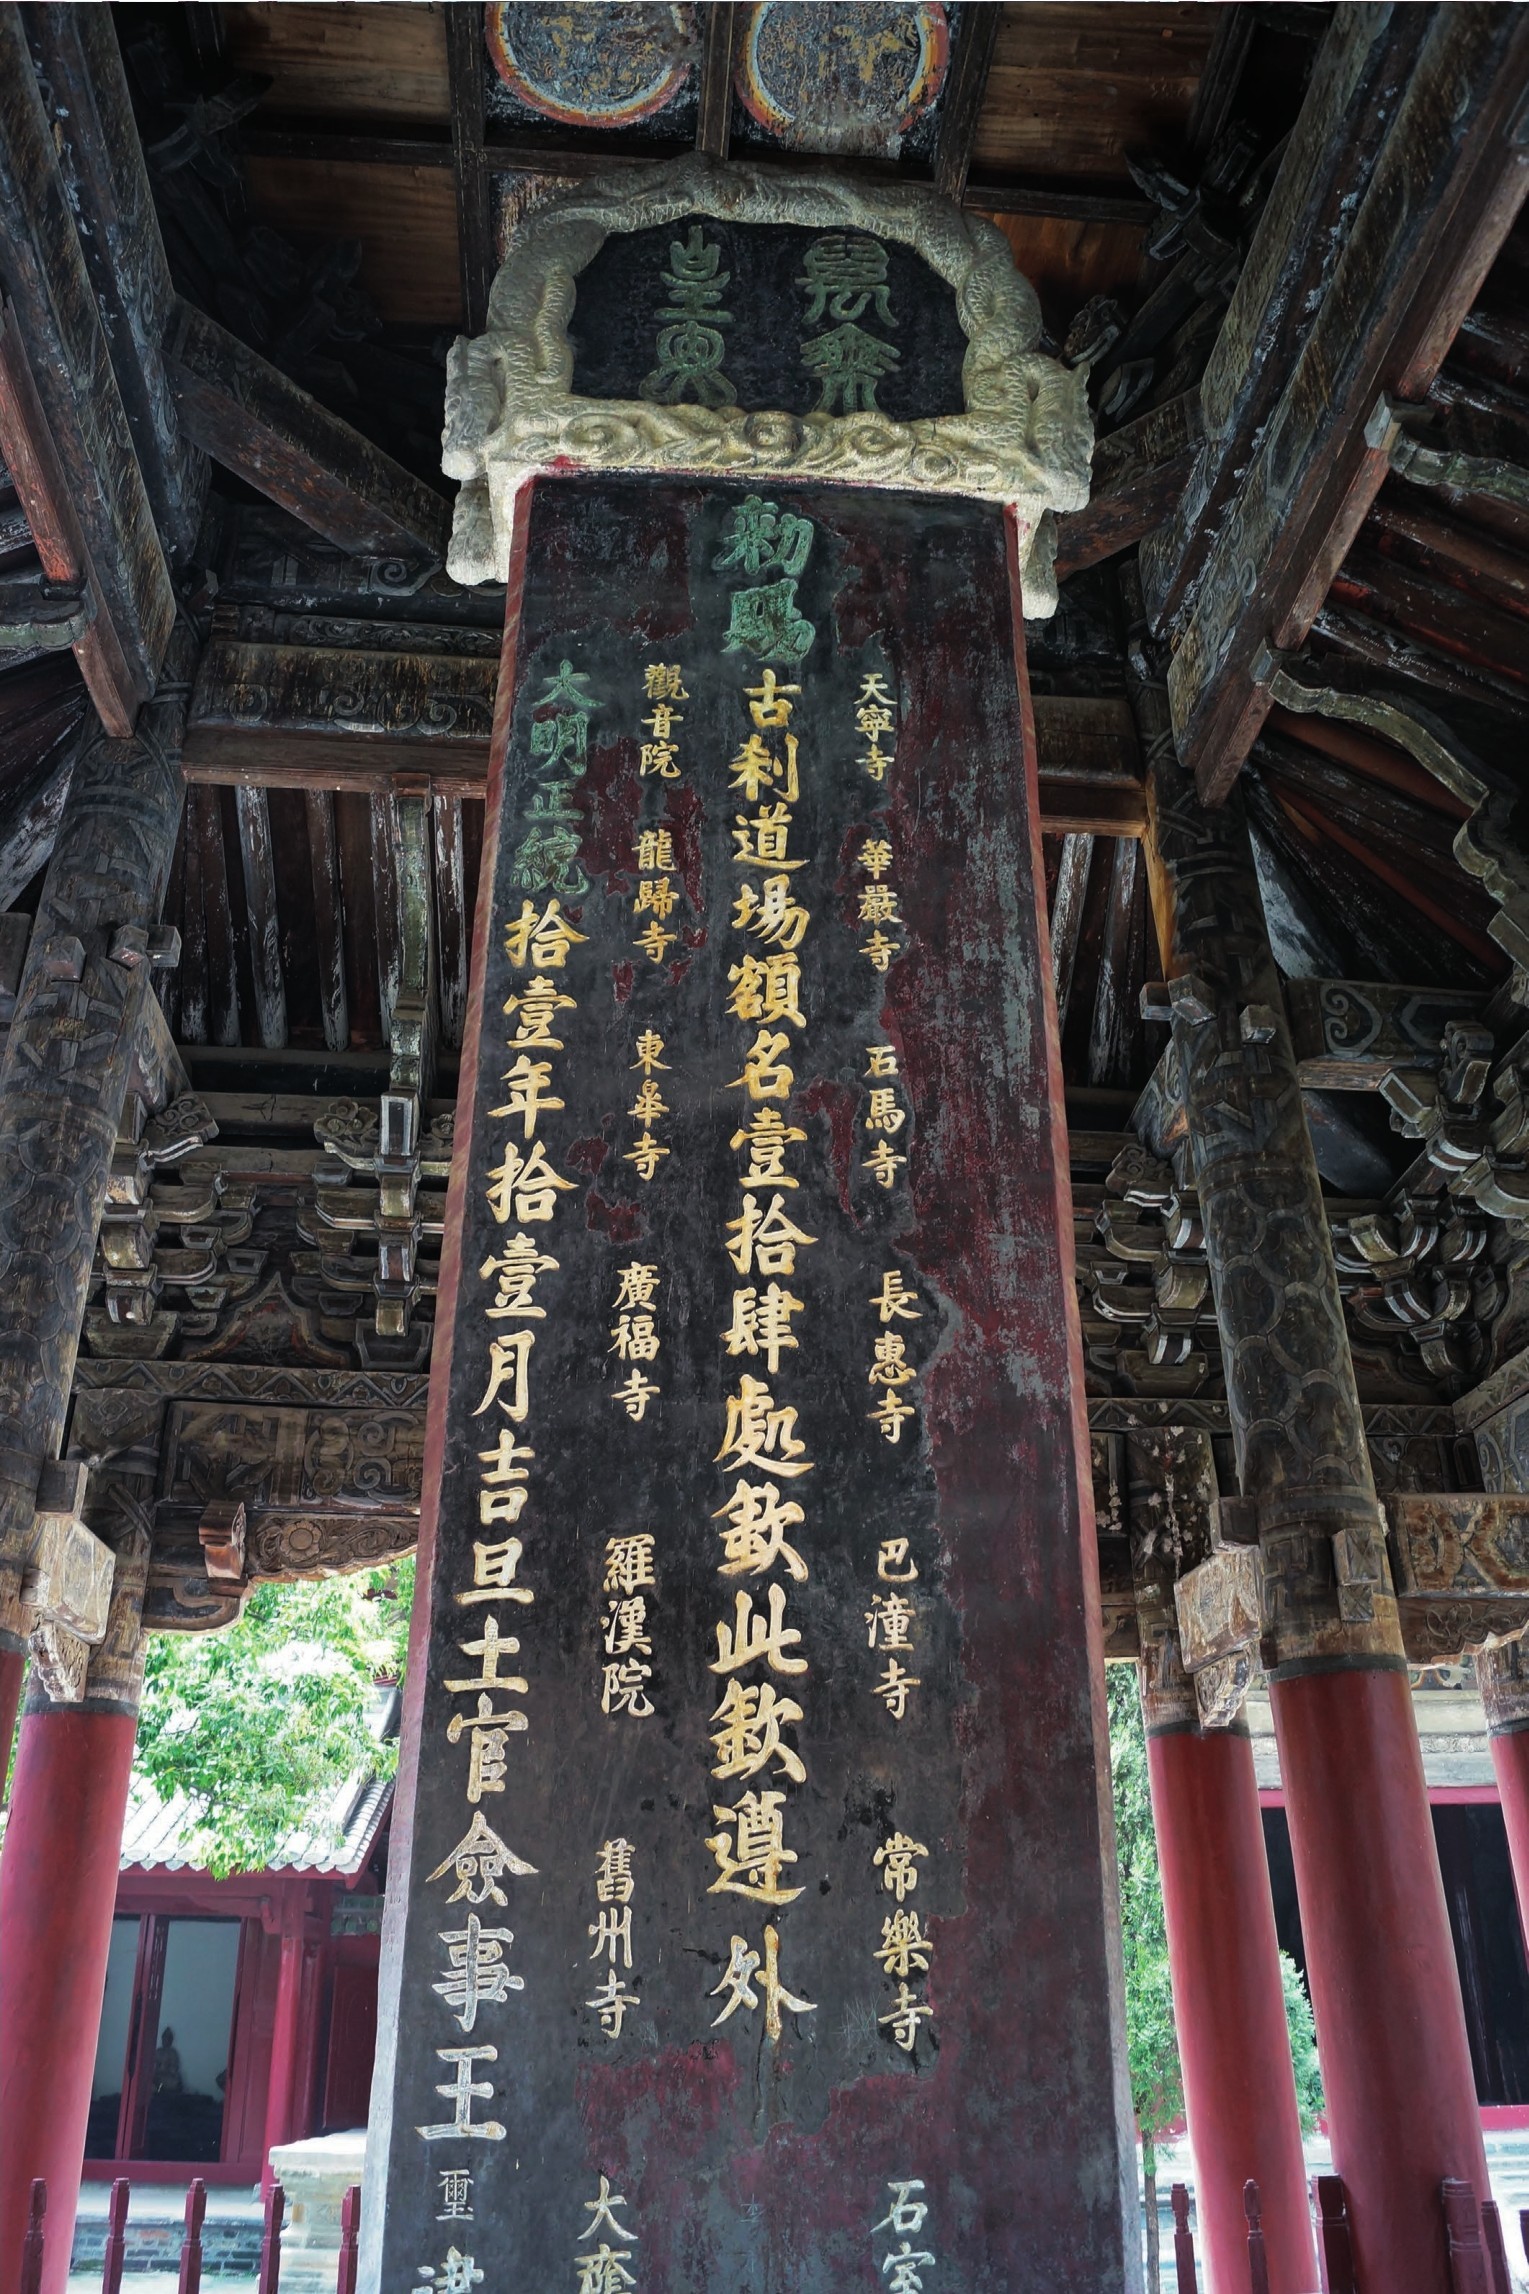 皇恩
天寧寺 華嚴寺 石馬寺 長惠寺 巴潼寺 常樂寺 石室
勅賜古刹道場額名壹拾肆處欽此欽遵外
觀音院 龍歸寺 東皋寺 廣福寺 羅漢院 舊州寺 大
大明正統拾壹年拾壹月吉旦土官僉事王璽